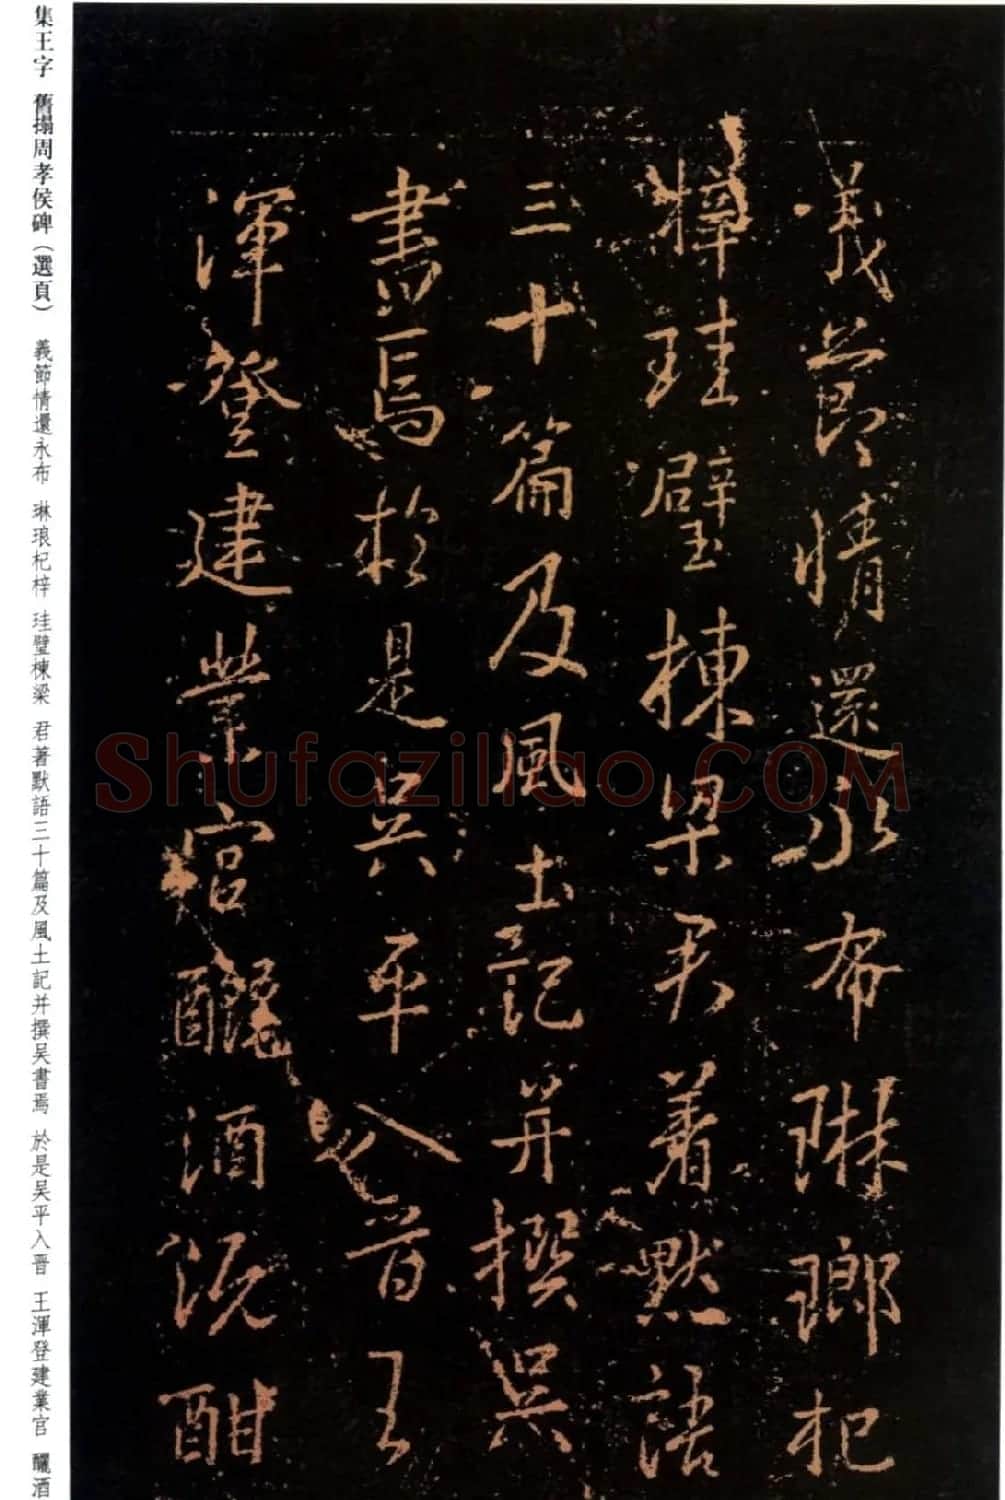 義節情還永布琳瑯杞
梓珪璧棟梁君著默語
三十篇及風土記并撰吳
書焉於是吳平入晉王
渾登建業宮釃酒既酣
集王字 舊搨周孝侯碑（選頁） 義節情還永布 琳琅杞梓 珪璧棟梁 君著默語三十篇及風土記并撰吴書焉 於是吴平入晋 王渾登建業官 釃酒
Shufaziliao.COM